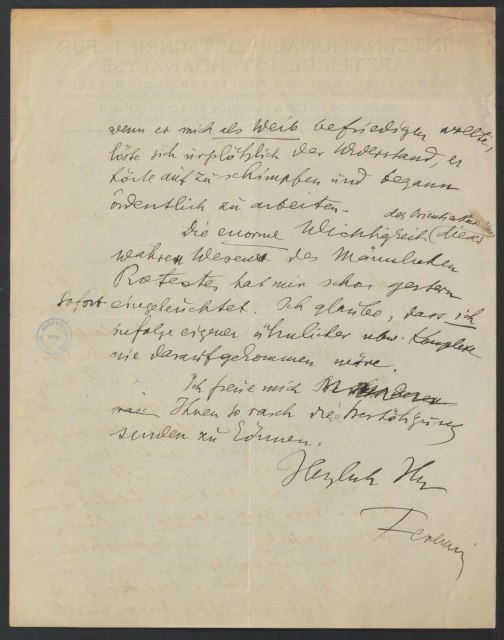 wenn er mich als Weib befriedigen wollte,
löste sich urplötzlich der Widerstand, er
hörte auf zu schimpfen und begann
ordentlich zu arbeiten.
Die enorme Wichtigkeit (dieses
wahren Wesens des Männlichen
Protestes hat mir schon gestern
sofort eingeleuchtet. Ich glaube, dass ich
infolge eigener ähnlicher ubw. Komplexe
nie darauf gekommen wäre.
Ich freue mich
Ihnen so rasch die Bestätigung
senden zu können.
Herzlich Ihr
Ferenczi